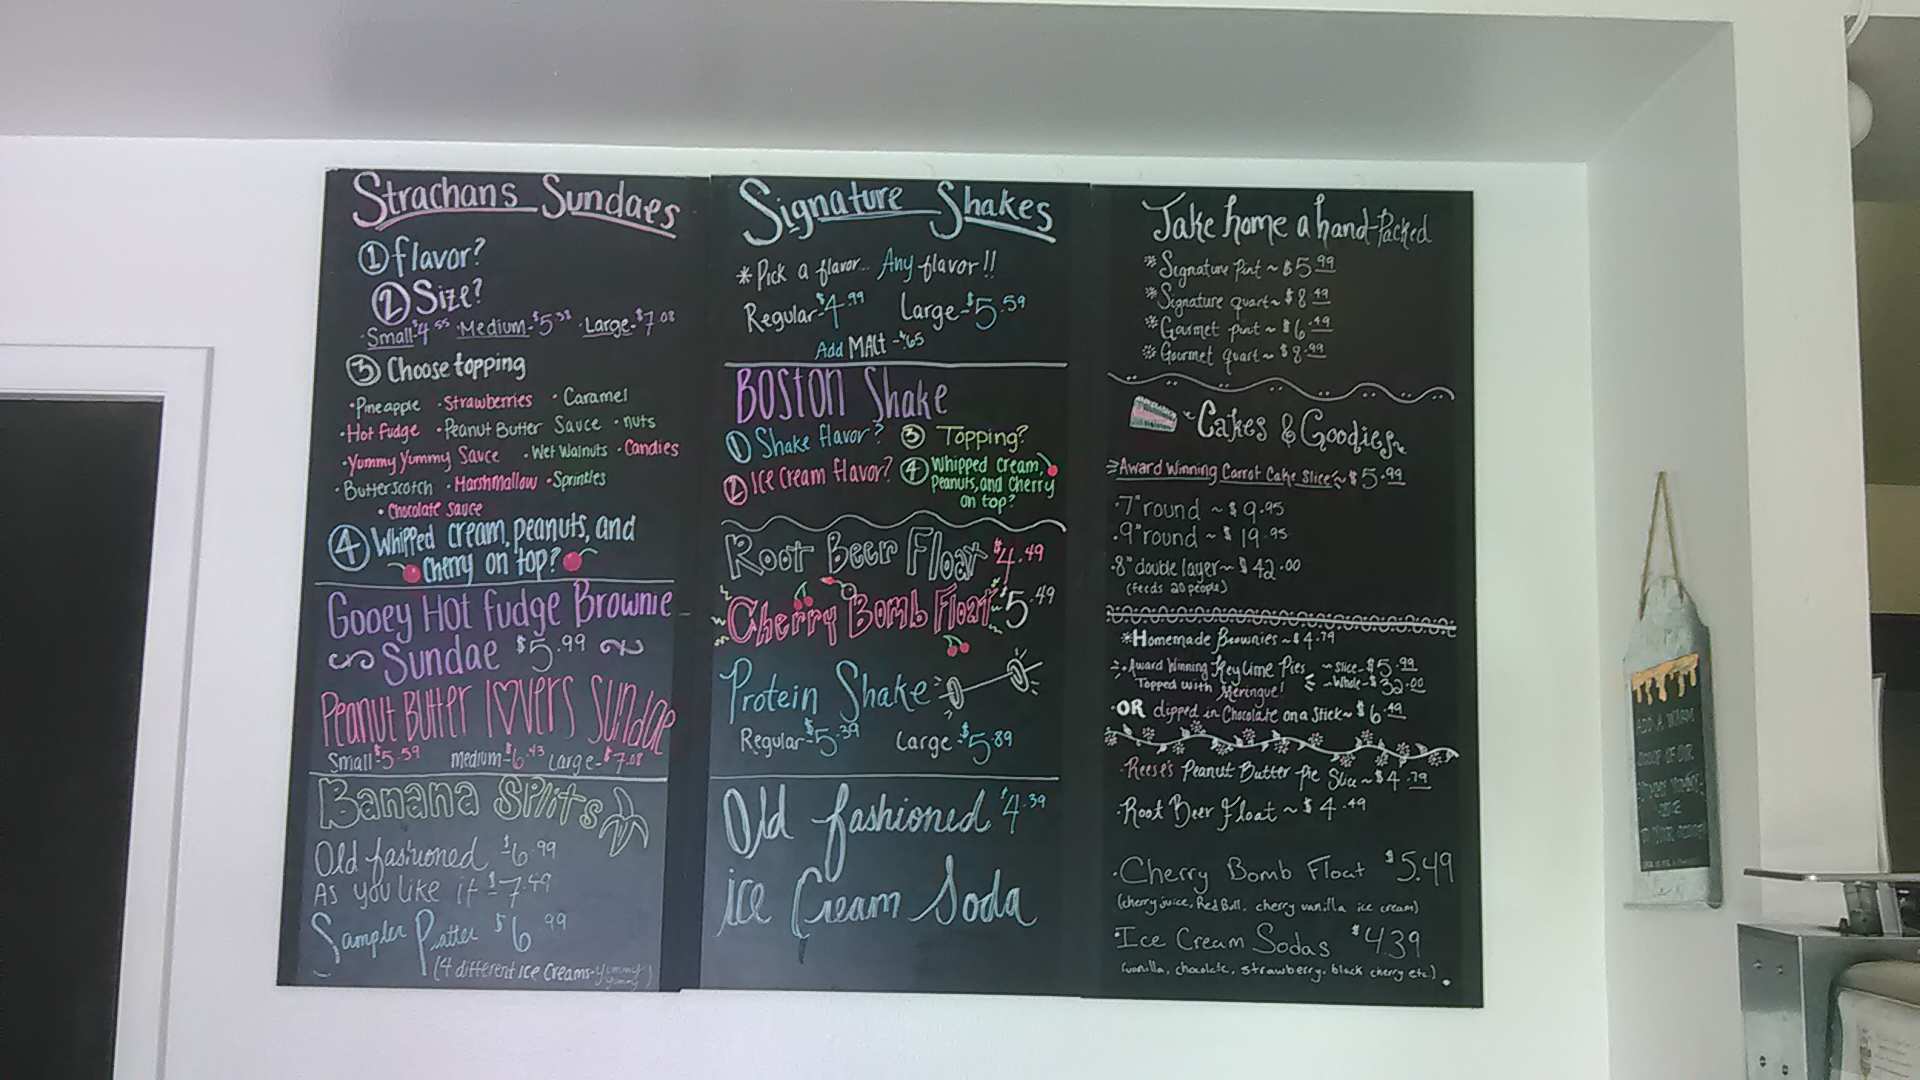 Strachans Sundaes
① flavor?
② Size?
·Small-$4.55 ·Medium-$5.38 ·Large-$7.08
③ Choose topping
·Pineapple ·Strawberries ·Caramel
·Hot Fudge ·Peanut Butter Sauce ·nuts
·Yummy Yummy Sauce ·Wet Walnuts ·Candies
·Butterscotch ·Marshmallow ·Sprinkles
·Chocolate Sauce
④ Whipped cream, peanuts, and
Cherry on top?
Gooey Hot fudge Brownie
Sundae $5.99
Peanut Butter lovers Sundae
Small-$5.59 medium-$6.43 Large-$7.08
Banana Splits
Old fashioned $6.99
As you like it $7.49
Sampler Platter $6.99
(4 different ice creams-yummy yummy)
Signature Shakes
*Pick a flavor... Any flavor!!
Regular-$4.99 Large-$5.59
Add Malt -$.65
Boston Shake
① Shake flavor? ③ Topping?
② Ice Cream flavor? ④ Whipped cream,
Peanuts, and Cherry
on top?
Root Beer Float $4.49
Cherry Bomb Float $5.49
Protein Shake
Regular-$5.39 Large-$5.89
Old fashioned $4.39
ice Cream Soda
Take home a hand-Packed
*Signature Pint ~ $5.99
*Signature quart ~ $8.49
*Gourmet pint ~ $6.49
*Gourmet quart ~ $8.99
Cakes & Goodies
Award Winning Carrot Cake Slice ~ $5.99
·7" round ~ $9.95
·9" round ~ $19.95
·8" double layer ~ $42.00
(feeds 20 people)
*Homemade Brownies ~ $4.79
·Award Winning Key Lime Pies ~ Slice - $5.99
Topped with Meringue! ~ Whole - $32.00
·OR dipped in Chocolate on a Stick ~ $6.49
·Reese's Peanut Butter Pie Slice ~ $4.79
·Root Beer Float ~ $4.49
·Cherry Bomb Float $5.49
(cherry juice, Red Bull, cherry vanilla ice cream)
·Ice Cream Sodas $4.39
(vanilla, chocolate, strawberry, black cherry etc.)
ADD A WARM
SCOOP OF OUR